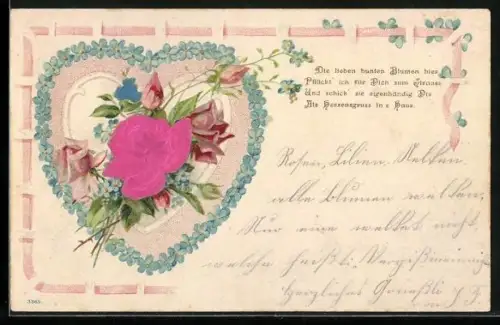 Die lieben bunten Blumen hier
Pflückt' ich für Dich zum Strauss
Und schick' sie eigenhändig Dir
Als Herzensgruss in's Haus.
Rosen, Lilien, Nelken
alle Blumen welken,
Nur eine welket nicht,
welche heißt: Vergißmeinnicht
Herzliches